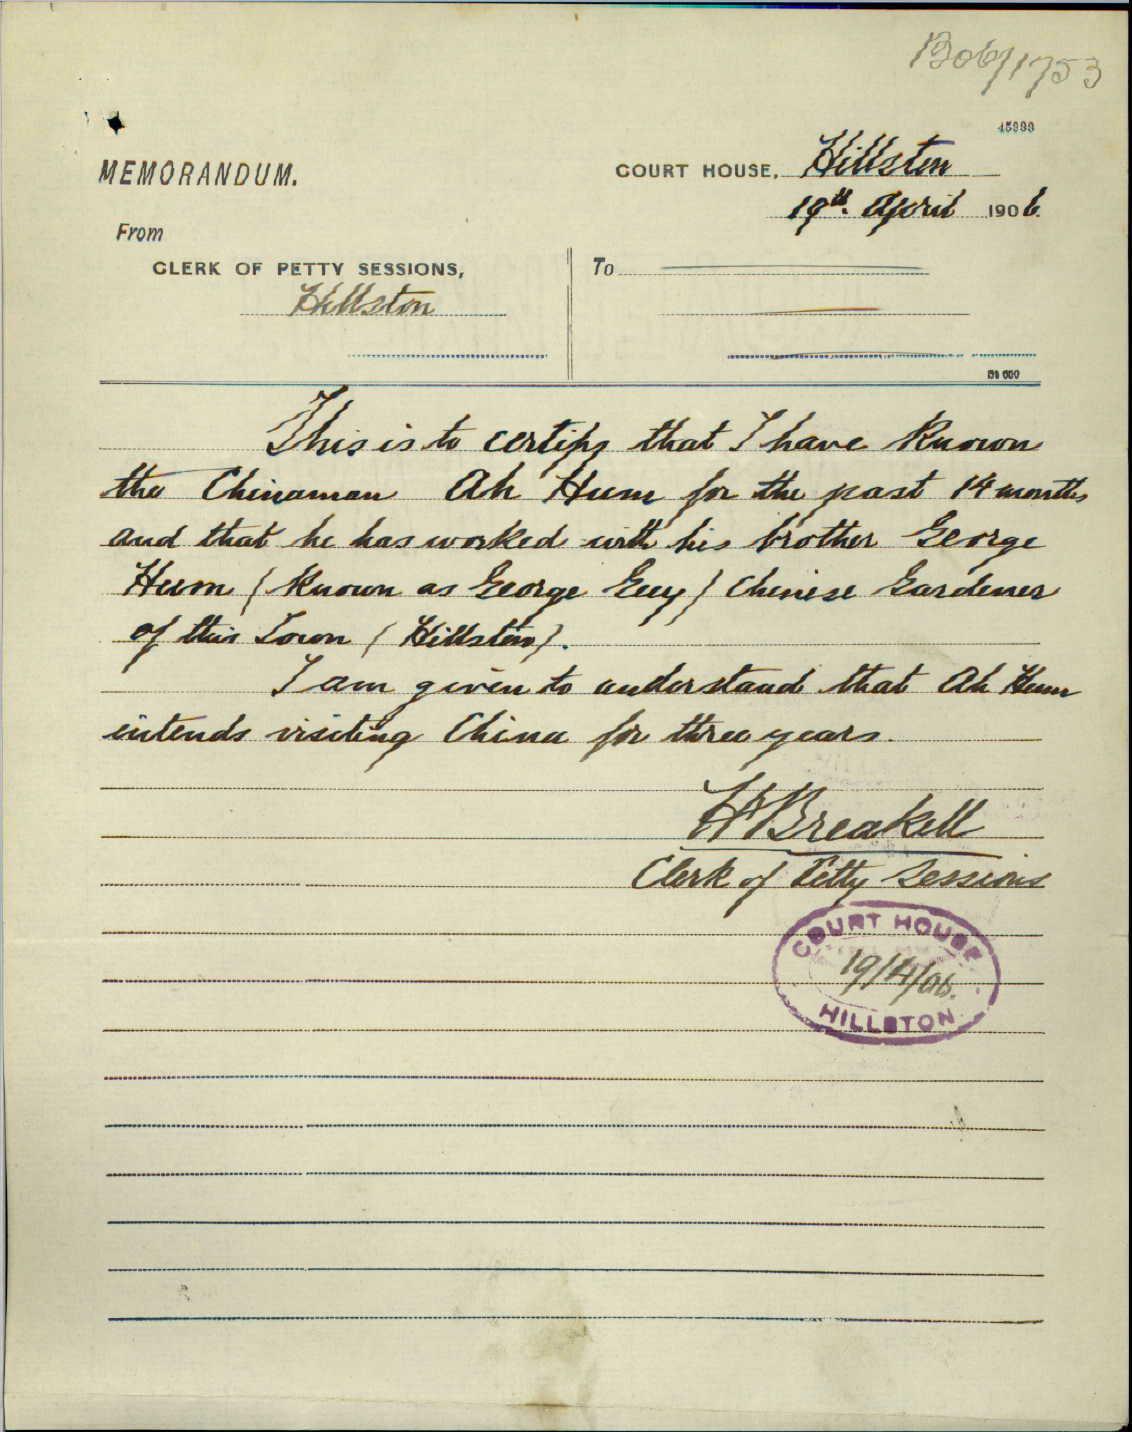 B06/1753
45999
MEMORANDUM.
COURT HOUSE, Hillston
19th. April 1906.
From
CLERK OF PETTY SESSIONS,
Hillston
To
This is to certify that I have known
the Chinaman Ah Hum for the past 14 months
and that he has worked with his brother George
Hum (known as George Guy) Chinese Gardener
of this Town (Hillston).
I am given to understand that Ah Hum
intends visiting China for three years.
Breakell
Clerk of Petty Sessions
COURT HOUSE
19/4/06.
HILLSTON